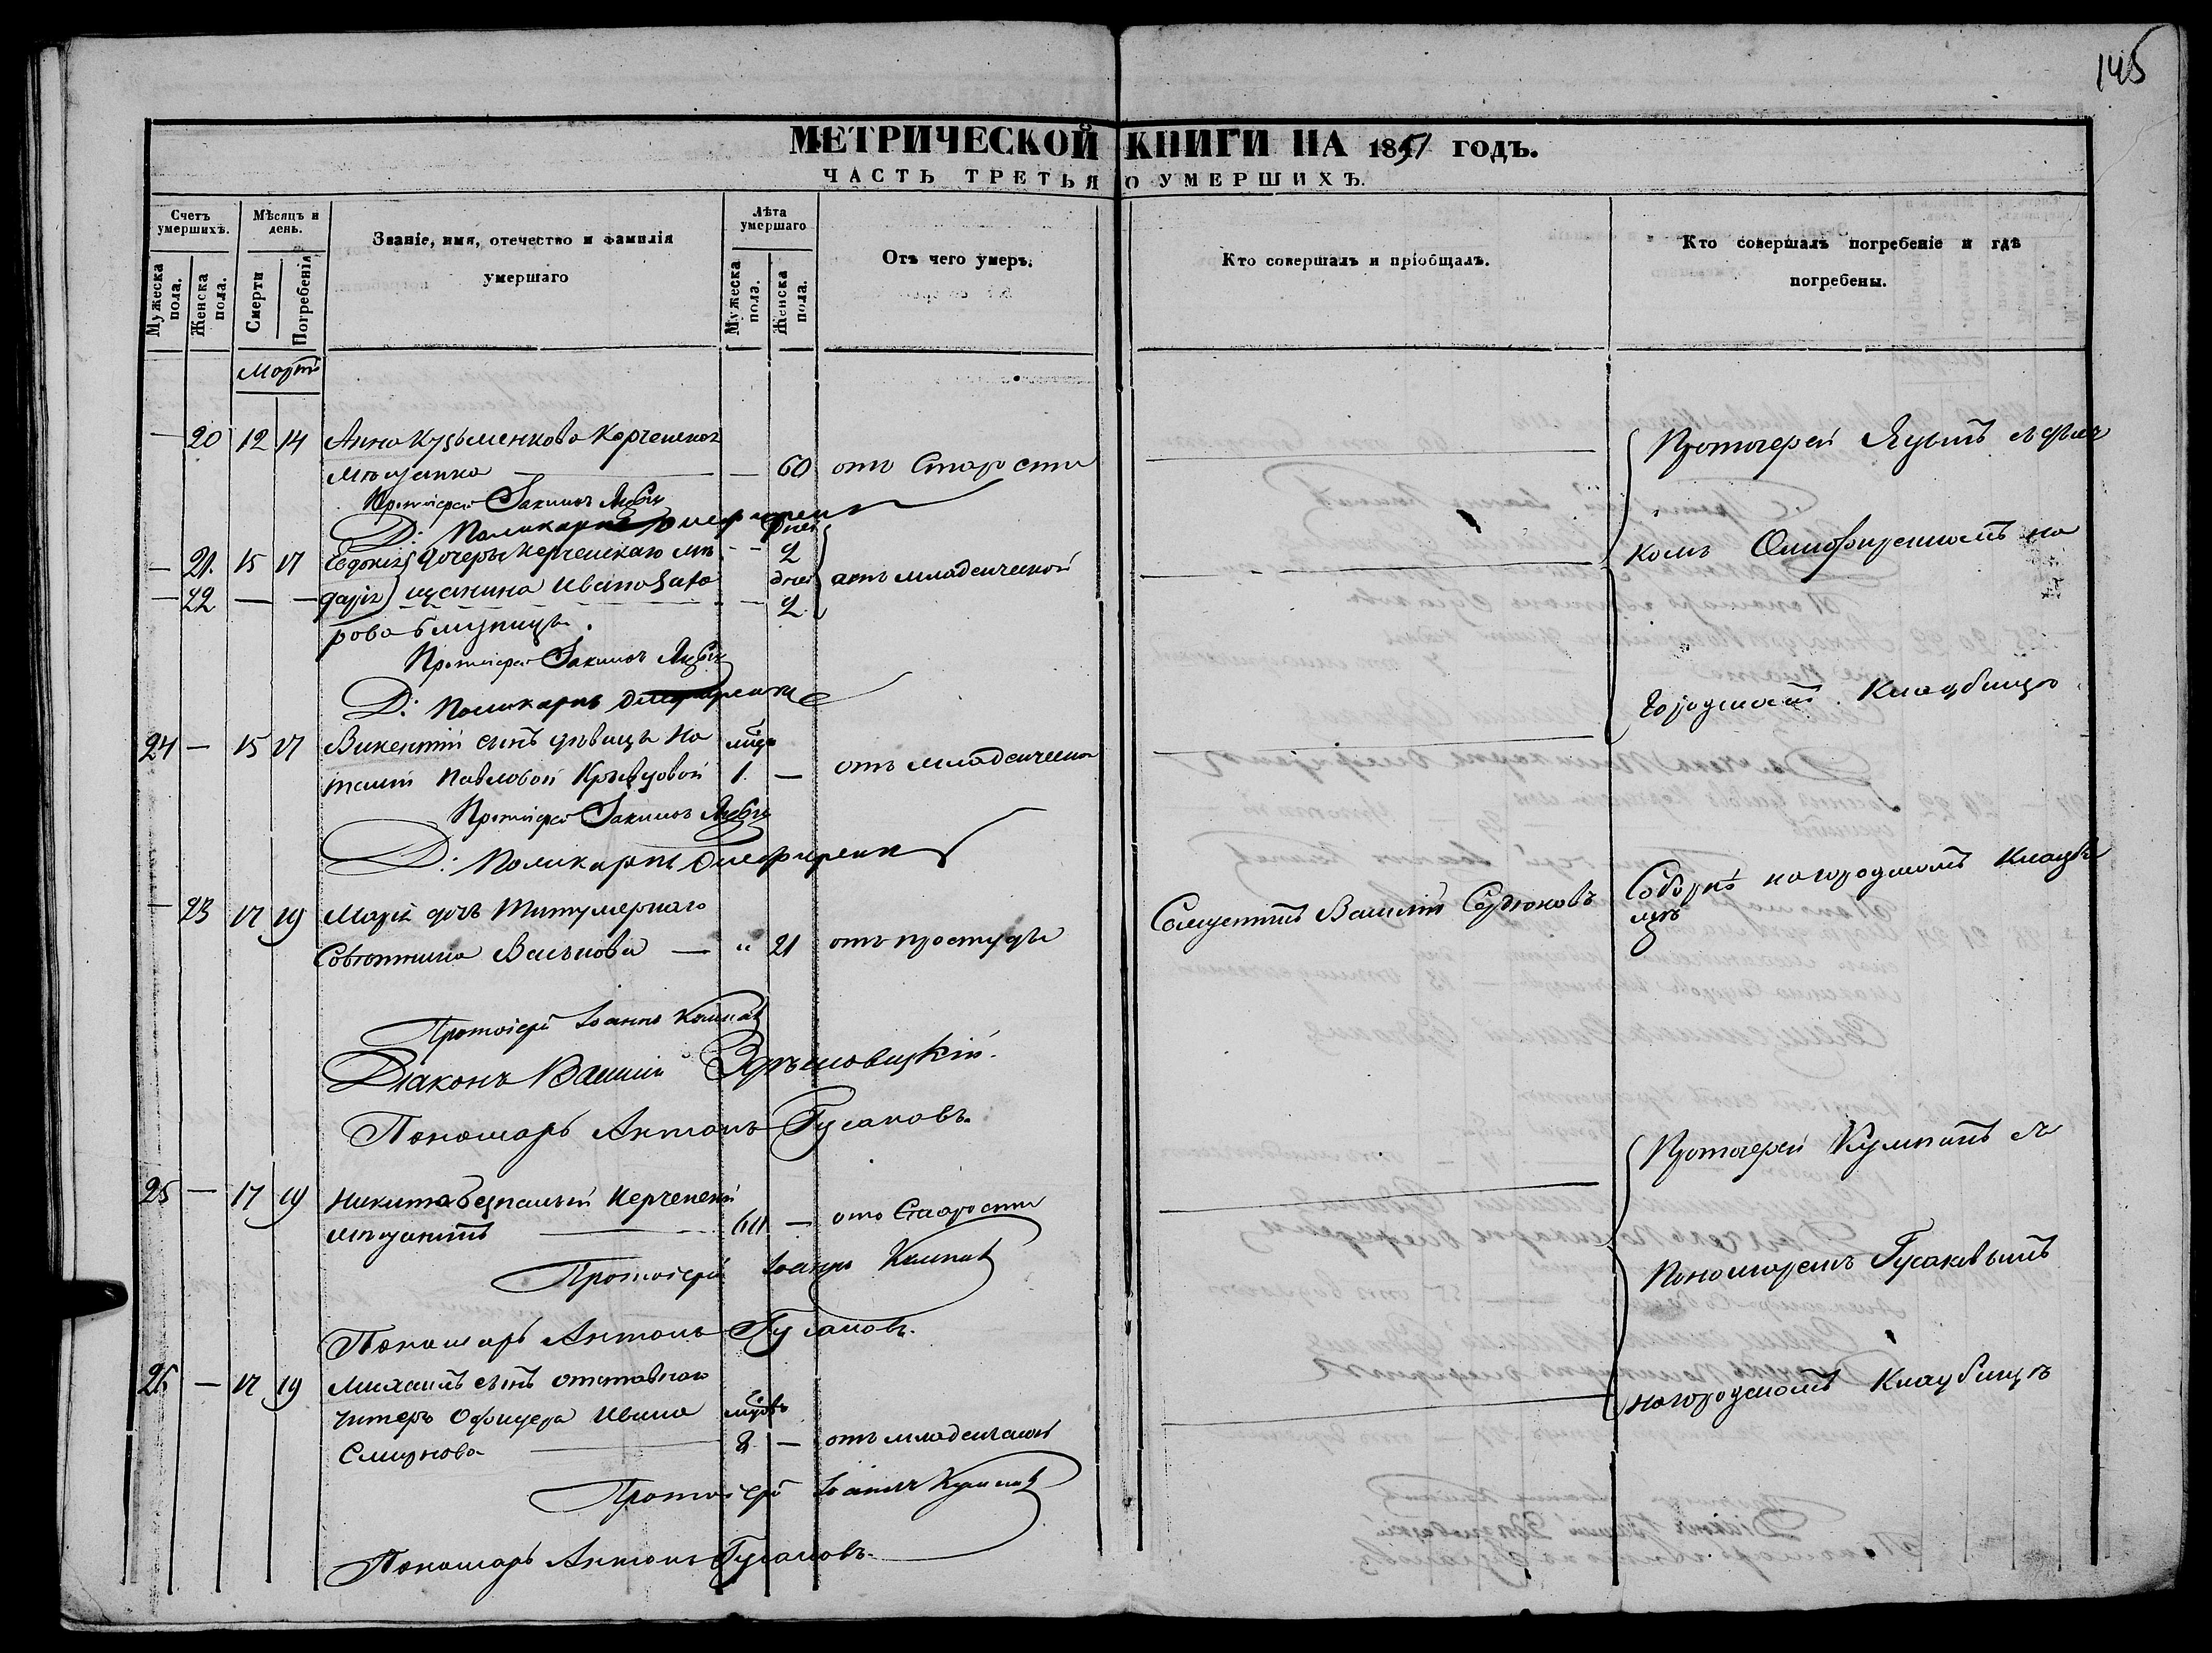 145
МЕТРИЧЕСКОЙ КНИГИ НА 1851 ГОДЪ.
ЧАСТЬ ТРЕТЬЯ О УМЕРШИХЪ.
Счетъ умершихъ.
Мѣсяцъ и день.
Званіе, имя, отечество и фамилія умершаго
Лѣта умершаго
Отъ чего умеръ.
Кто совершалъ и пріобщалъ.
Кто совершалъ погребеніе и гдѣ погребены.
Мужеска пола.
Женска пола.
Смерти
Погребенія
Мужеска пола.
Женска пола.
Мартъ
— 20 12 14 Анна Кузьменкова Керченская
мѣщанка — — 60 отъ Старости
Протоіерей
Д: Поликарпъ
— 21. 15 17 Евдокія дочери Керченскаго мѣ - - дней 2
— 22 — — Дарія щанина Ивана Заха — дней 2. отъ младенческой
рова близницы.
Протоіерей
Д: Поликарпъ
Протоіерей съ Діа
кономъ на
Городскомъ Кладбищѣ
24 — 15 17 Викентій сынъ дѣвицы На мѣся
таліи Павловой Кравцовой 1. — отъ младенческой
Протоіерей
Д: Поликарпъ
— 23 17 19 Марія дочь Титулярнаго
Совѣтника Васькова — " 21 отъ простуды
Священникъ Василій Сердюковъ
Соборнѣ на городскомъ Кладби
щѣ
Протоіерей Іоаннъ Кумпанъ
Діаконъ Василій
Пономарь Антонъ Гусаковъ.
25 — 17 19 Никита Безпалый Керченскій
мѣщанинъ — 60 — отъ Старости
Протоіерей Іоаннъ Кумпанъ
Пономарь Антонъ Гусаковъ.
Протоіерей Кумпанъ съ
Пономаремъ Гусаковымъ
на городскомъ Кладбищѣ
26 — 17 19 Михаилъ сынъ отставнаго
Унтеръ Офицера Ивана мѣсяцовъ
Смирнова — 8 — отъ младенческой
Протоіерей Іоаннъ Кумпанъ
Пономарь Антонъ Гусаковъ.